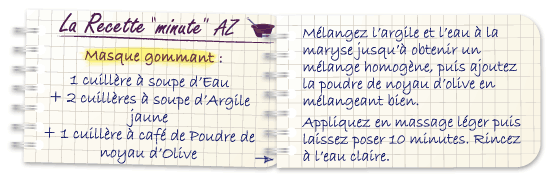 La Recette "minute" AZ
Masque gommant :
1 cuillère à soupe d'Eau
+ 2 cuillères à soupe d'Argile
jaune
+ 1 cuillère à café de Poudre de
noyau d'Olive
Mélangez l'argile et l'eau à la
maryse jusqu'à obtenir un
mélange homogène, puis ajoutez
la poudre de noyau d'olive en
mélangeant bien.
Appliquez en massage léger puis
laissez poser 10 minutes. Rincez
à l'eau claire.